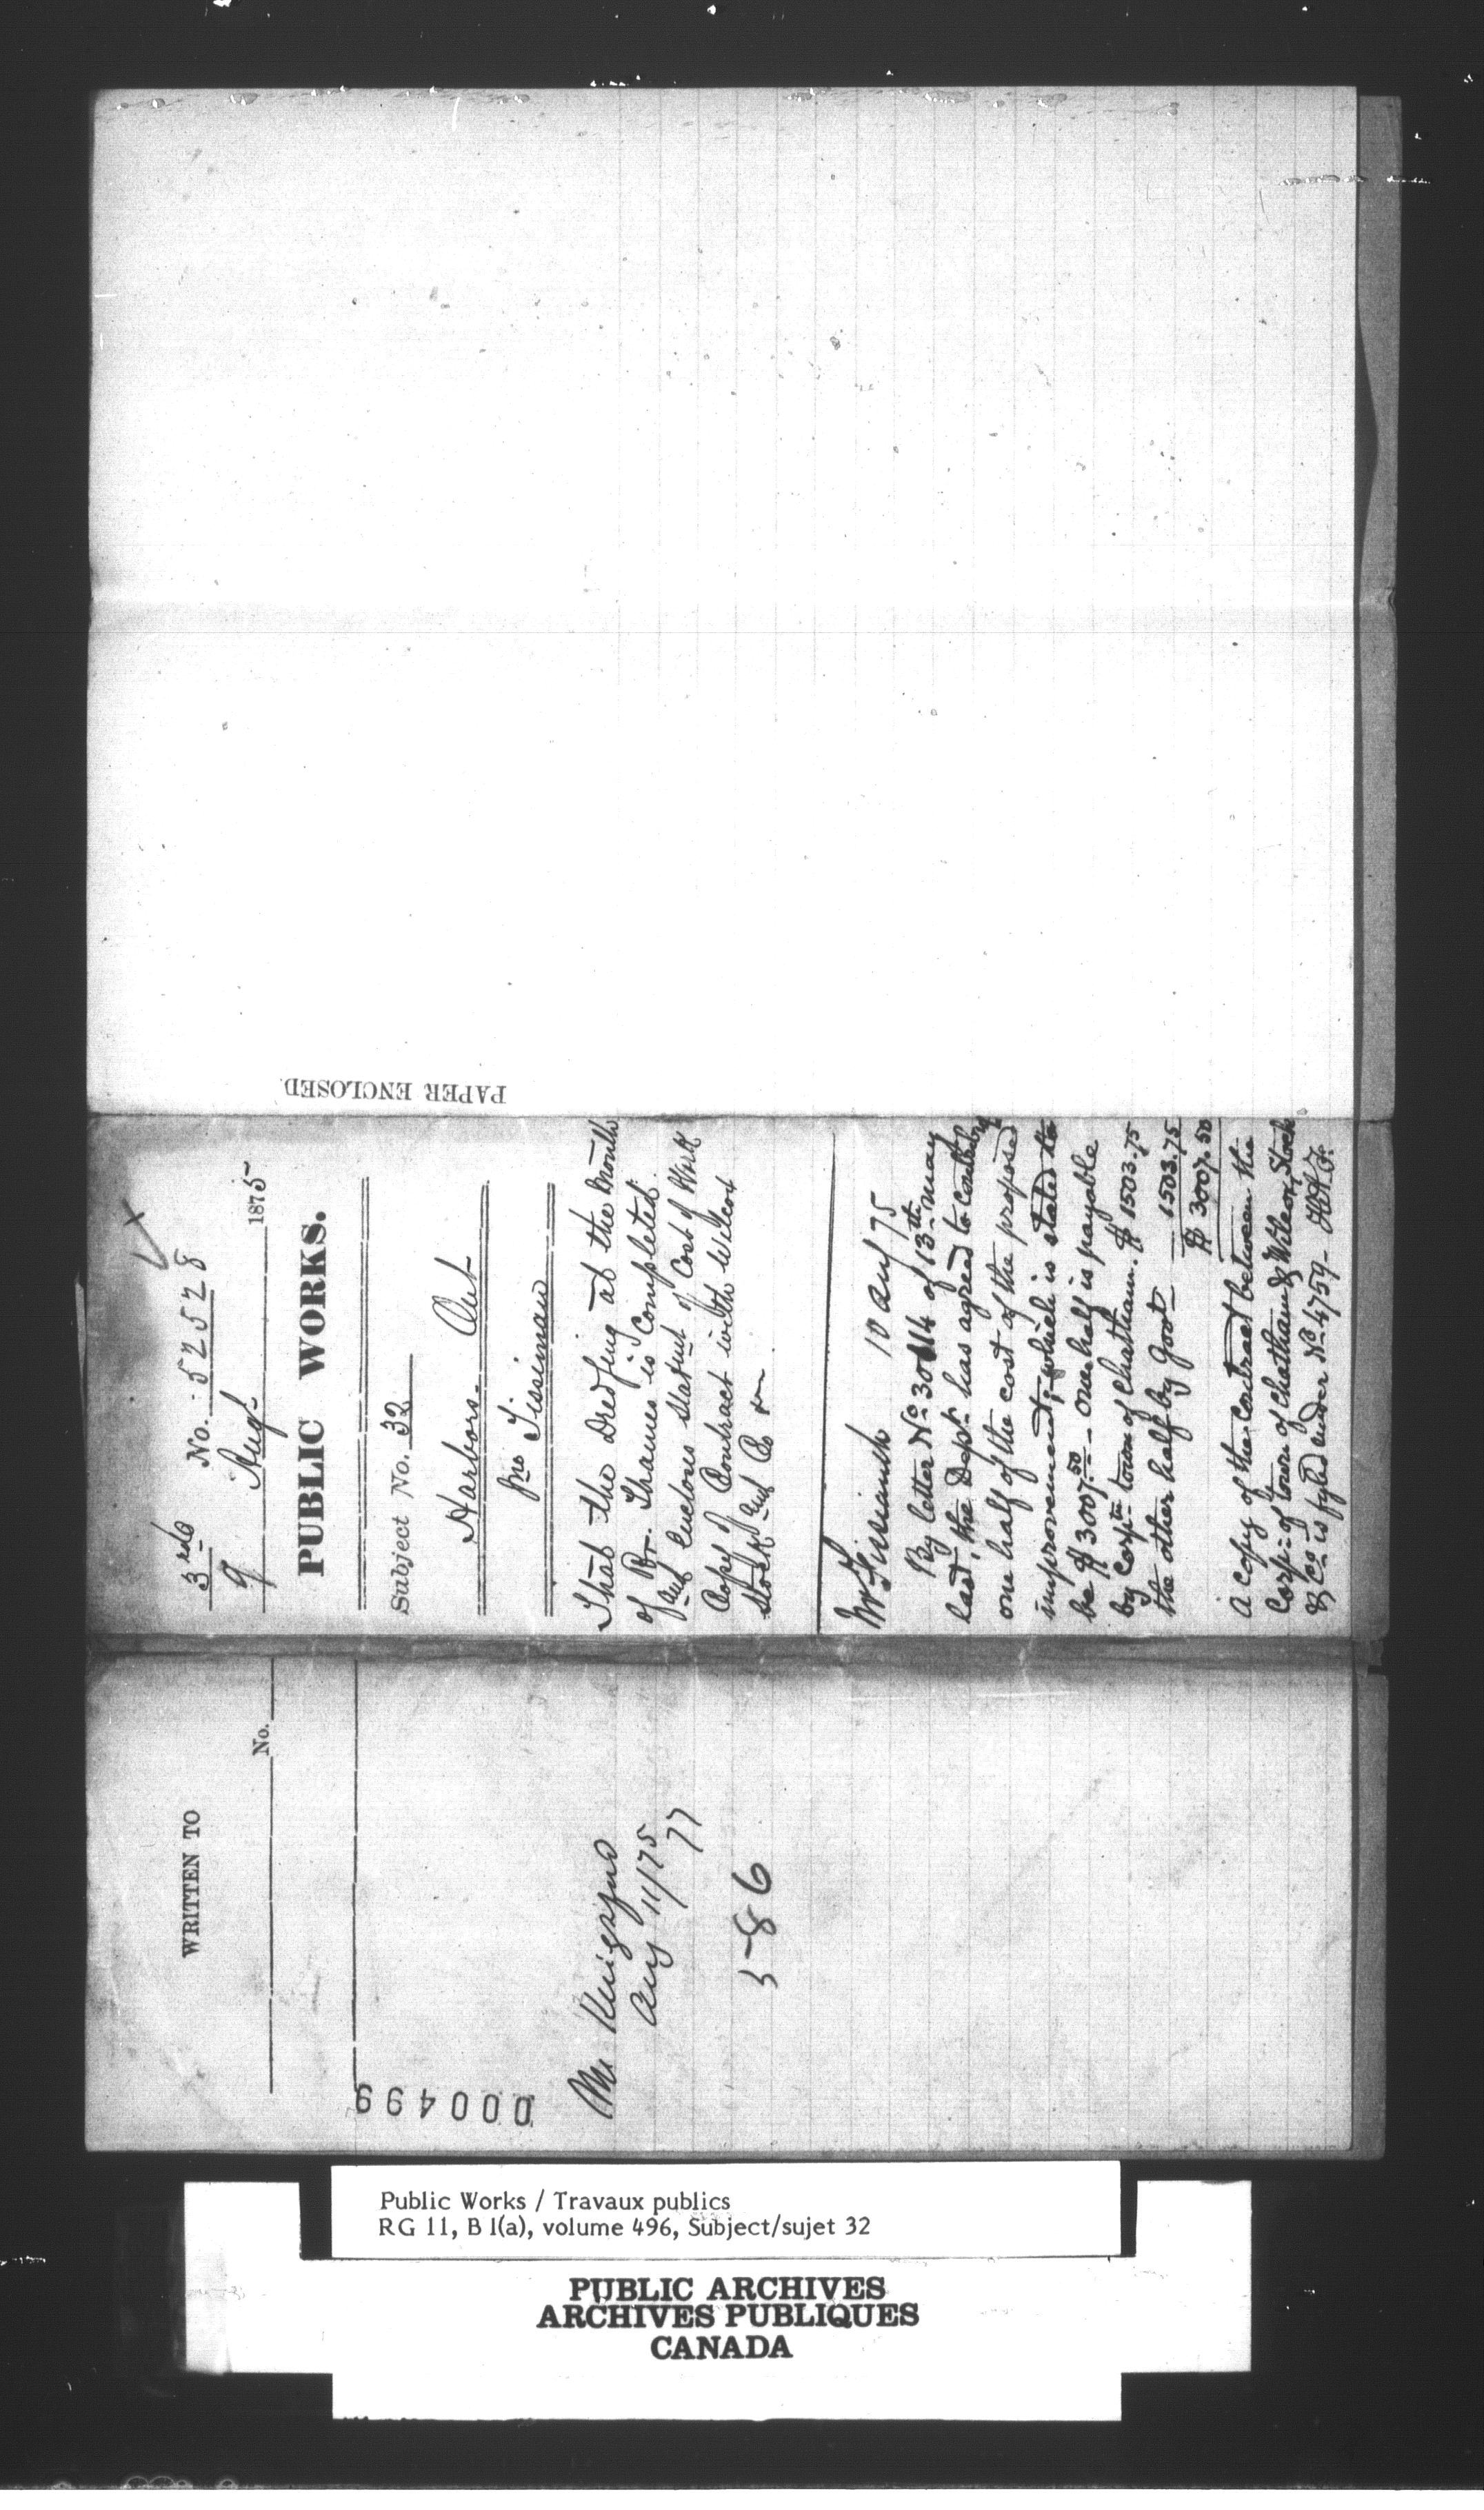 3rd No. 52528
9 Augt 1875
PUBLIC WORKS.
Subject No. 32
Harbors Ont
Jno Tissiman
That the Dredging at the Mouth
of Rr. Thames is Completed.
and encloses Statmt of Cost of Work
Copy of Contract with Wilcox
Stock and Co
10 Aug 75
By letter No. 30114 of 13th may
last, the Dept. has agreed to contribute
one half of the cost of the proposed
improvement, which is stated to
be $3007.50 - one half is payable
by Corpn. town of Chatham. $ 1503.75
the other half by Govt 1503.75
$ 3007.50
A copy of the contract between the
Corpn. of town of Chatham & Wilcox, Stock
& Co. is fyled under No. 4759
PAPER ENCLOSED
WRITTEN TO
No.
Mr
Aug 11/75
77
586
000499
Public Works / Travaux publics
RG 11, B 1(a), volume 496, Subject/sujet 32
PUBLIC ARCHIVES
ARCHIVES PUBLIQUES
CANADA